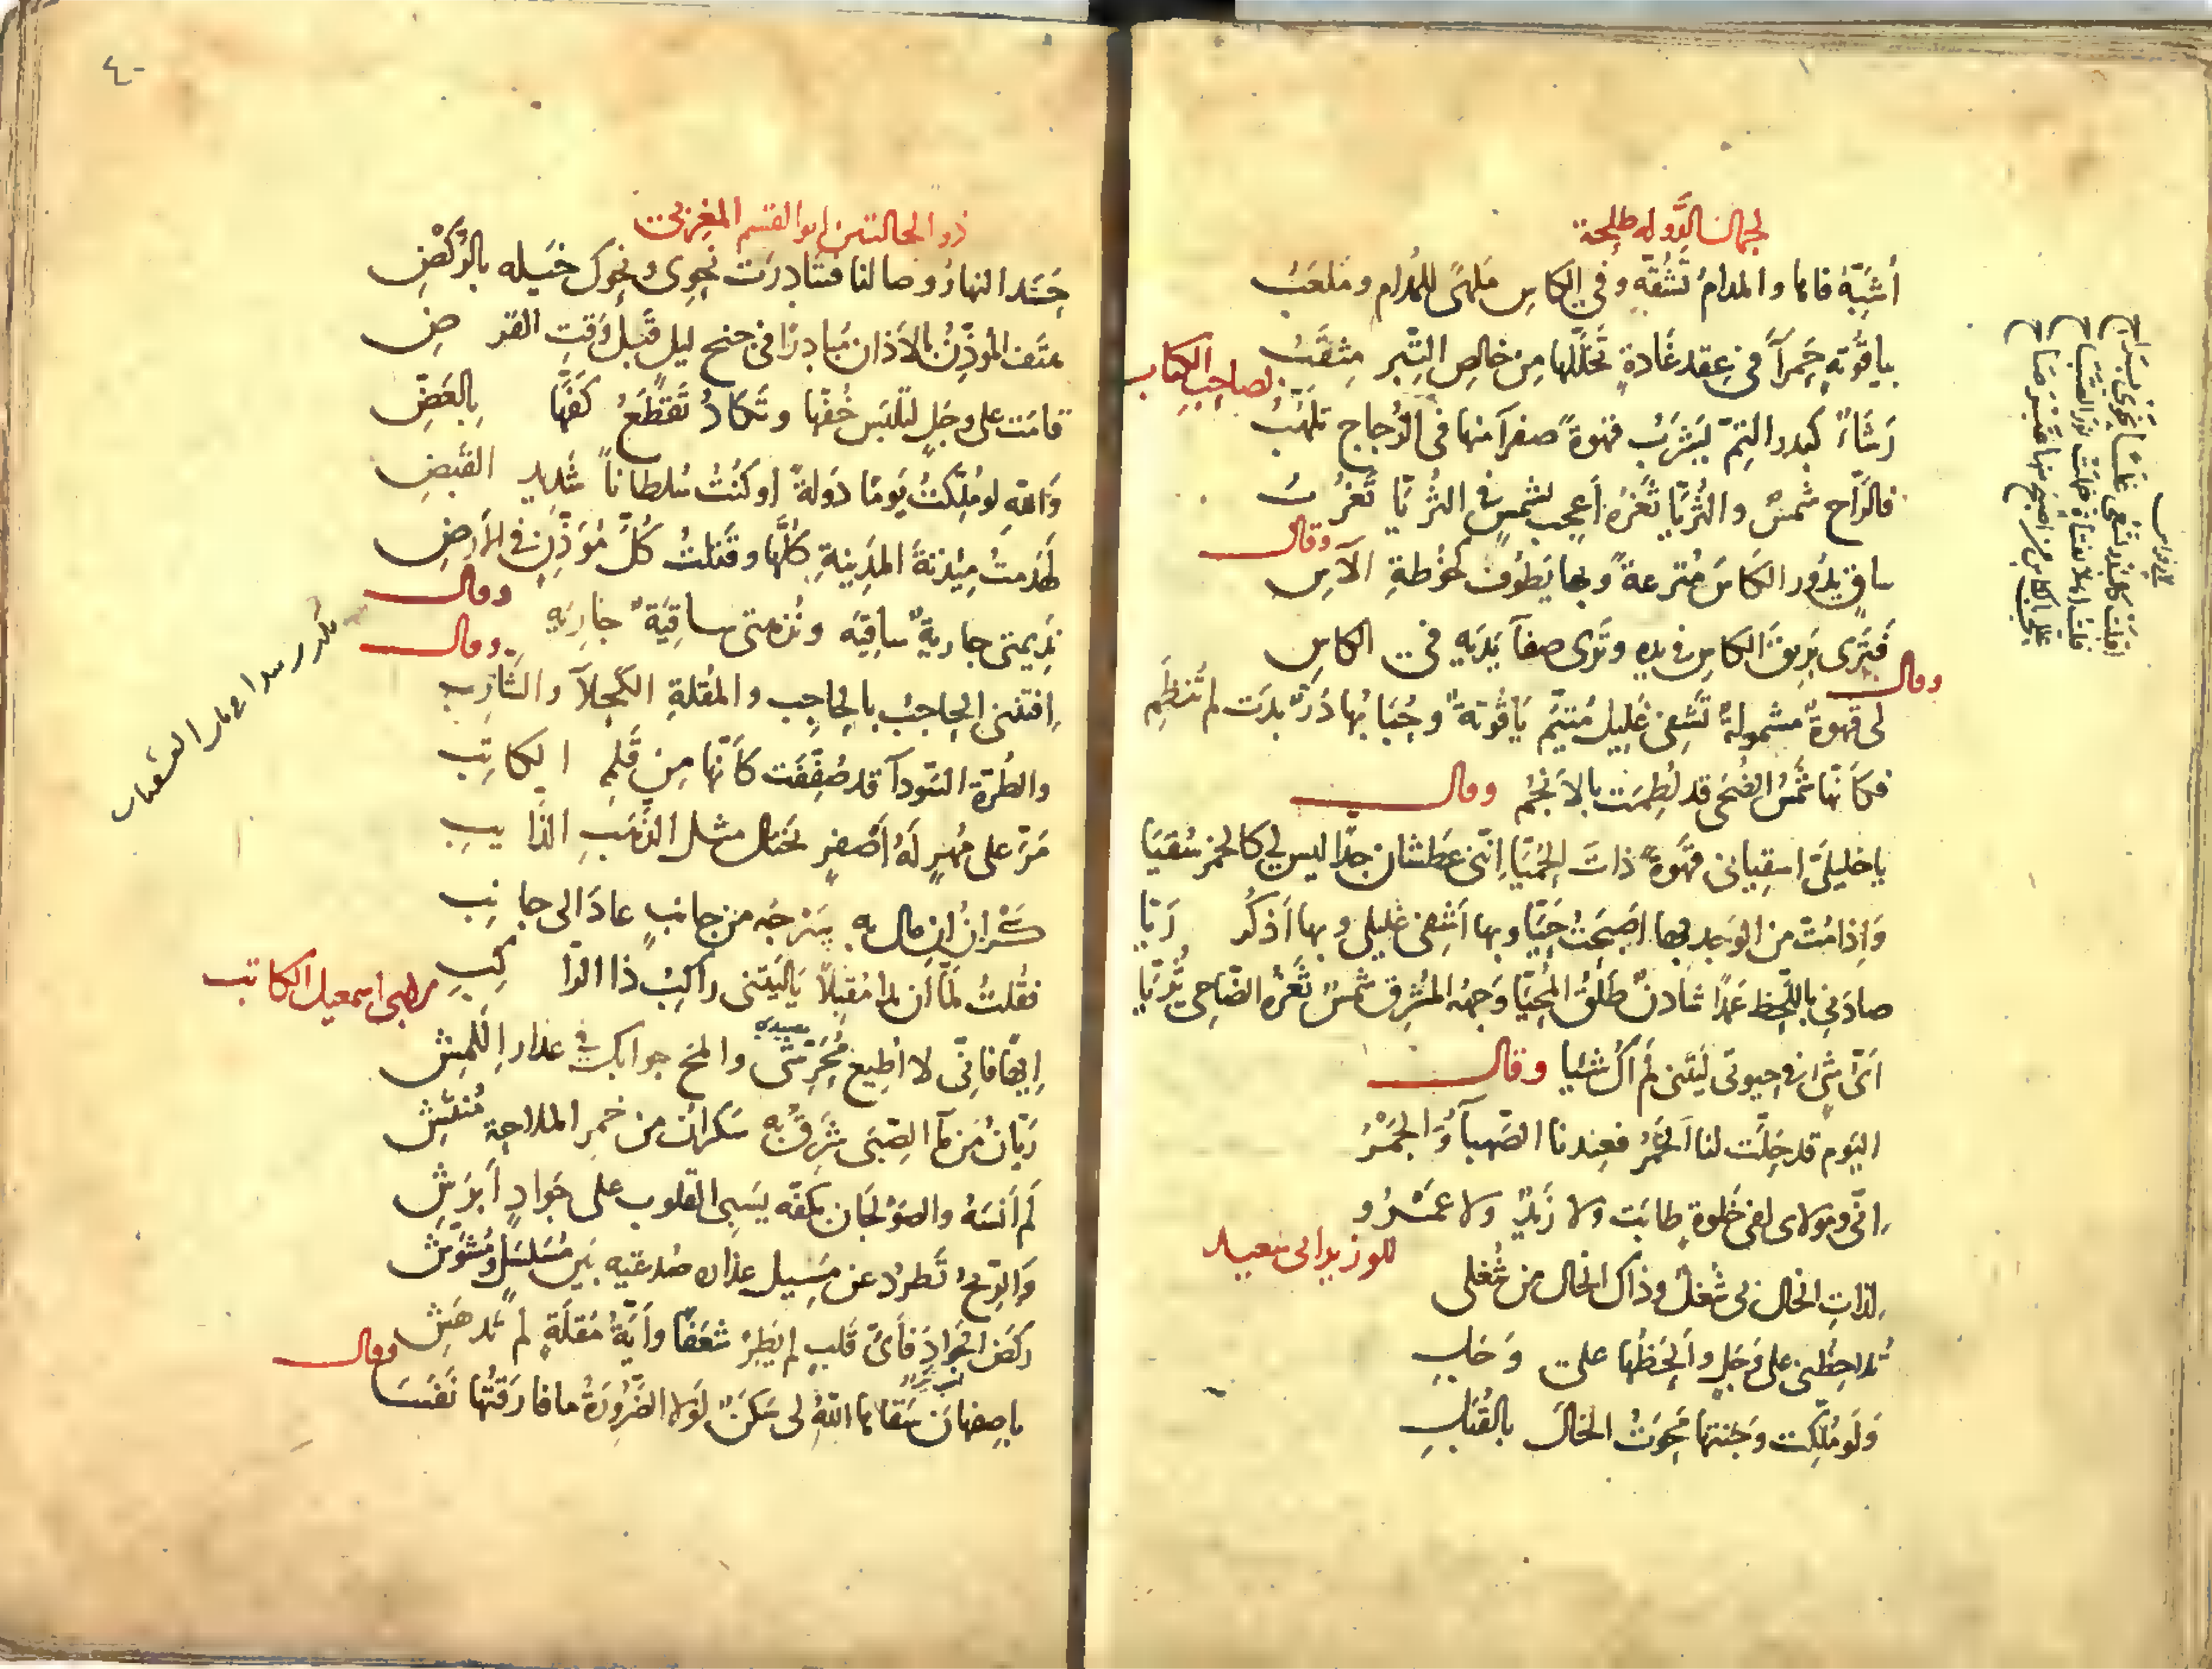 لجمال الدوله طلحة
أشبّه فاها والمدامُ تشقّه وفي الكاسِ ملهىً للمدام وملعبُ
بياقوتةٍ حمرآ في عقد غادةٍ تخللها من خالصِ التبرِ مثقبُ
لصاحب الكتاب
رشاءٌ كبدر التمّ يشربُ قهوةً صفرآ منها في الزجاج تلهّبُ
فالراح شمسٌ والثريّا ثغرُهُ أعجِب لشمسٍ في الثريّا تغربُ
وقال
ساقٍ يدور الكاسَ مترعةً وبها يطوف كخوطةِ الآسِ
فترى بريقَ الكاسِ في يده وترى صفآ يديه في الكاسِ
وقال
لي قهوةٌ مشمولةٌ تشفي غليل متيّم ياقوتةٌ وحبابها درٌّ بدت لم تنظمِ
فكأنها شمسُ الضحى قد لطمت بالأنجم وقال
ياخليليّ اسقياني قهوةً ذات الحميّا إنني عطشان جدًّا ليس لي كالخمز سقيَا
وإذا مُتّ من الوجد بها أصبحتُ حيّا وبها أشفي غليلي وبها أذكر ريّا
صادني باللحظ عمدًا شادنٌ طلقُ المحيّا وجههُ المشرق شمسٌ ثغرُه الضاحي ثريّا
أيّ شيءٍ في حيوتي ليتني لم أك شيئا وقال
اليوم قد حلّت لنا الخمرُ فعندنا الصهبآ والجمرُ
إنّي ومولاي لفي خلوةٍ طابت ولا زيدٌ ولا عمرو
للوزير ابي سعيد
لذات الخال لي شغلٌ وذاك الخال من شغلي
تلاحظني على وجلٍ وألحظها على وجلِ
ولو مُلّكت وجنتها محوتُ الخالَ بالقبلِ
لابي نواس
ذو الجالتين ابو القسم المغربي
حسد النهارُ وصالنا فتبادرت نحوى ونحوك خيله بالركضِ
هتف المؤذّنُ بالأذان مبادرًا في جنح ليل قبل وقت الفرضِ
قامت على وجلٍ لتلبس خفّها وتكادُ تقطعُ كفّها بالعضِّ
والله لو مُلّكتُ يومًا دولةً أو كنتُ سلطانًا شديد القبضِ
لهدمتُ ميذنة المدينةِ كلّها وقتلتُ كلّ مؤذّنٍ في الأرضِ
وقال
نديمتي جاريةٌ ساقيَه ونزهتي ساقيةٌ جاريَه
وقال
افتنني الحاجبُ بالحاجبِ والمقلةِ الكحلآ والشاربِ
والطرّة السودآ قد صُفّفت كأنها من قلم الكاتبِ
مرّ على مهرٍ له أصفرٍ يختال مثل الذهبِ الذايبِ
سكران إن مال به سرجه من جانبٍ عاد الى جانبِ
فقلتُ لمّا أن بدا مقبلاً ياليتني راكبُ ذا الراكبِ
لابي اسمعيل الكاتب
إيهًا فإنّي لا أطيع محرّشى والمح جوابك في عذار
ريّانُ من مآ الصبى شرقٌ به سكران من خمر الملاحة منتشِ
لم أنسه والصولجان بكفّه يسبي القلوب على جوادٍ أبرشِ
والريحُ تطرد عن مسيل عذاره صدغيه بين مسلسلٍ ومشوّش
ركض الجوادَ فأيّ قلبٍ لم يطر شغفًا وأيّةُ مقلةٍ لم تدهشِ
وقال
باصفهان سقاها اللهُ لي سكنٌ لولا الضرورةُ ما فارقتُها نفسَا
٤٠